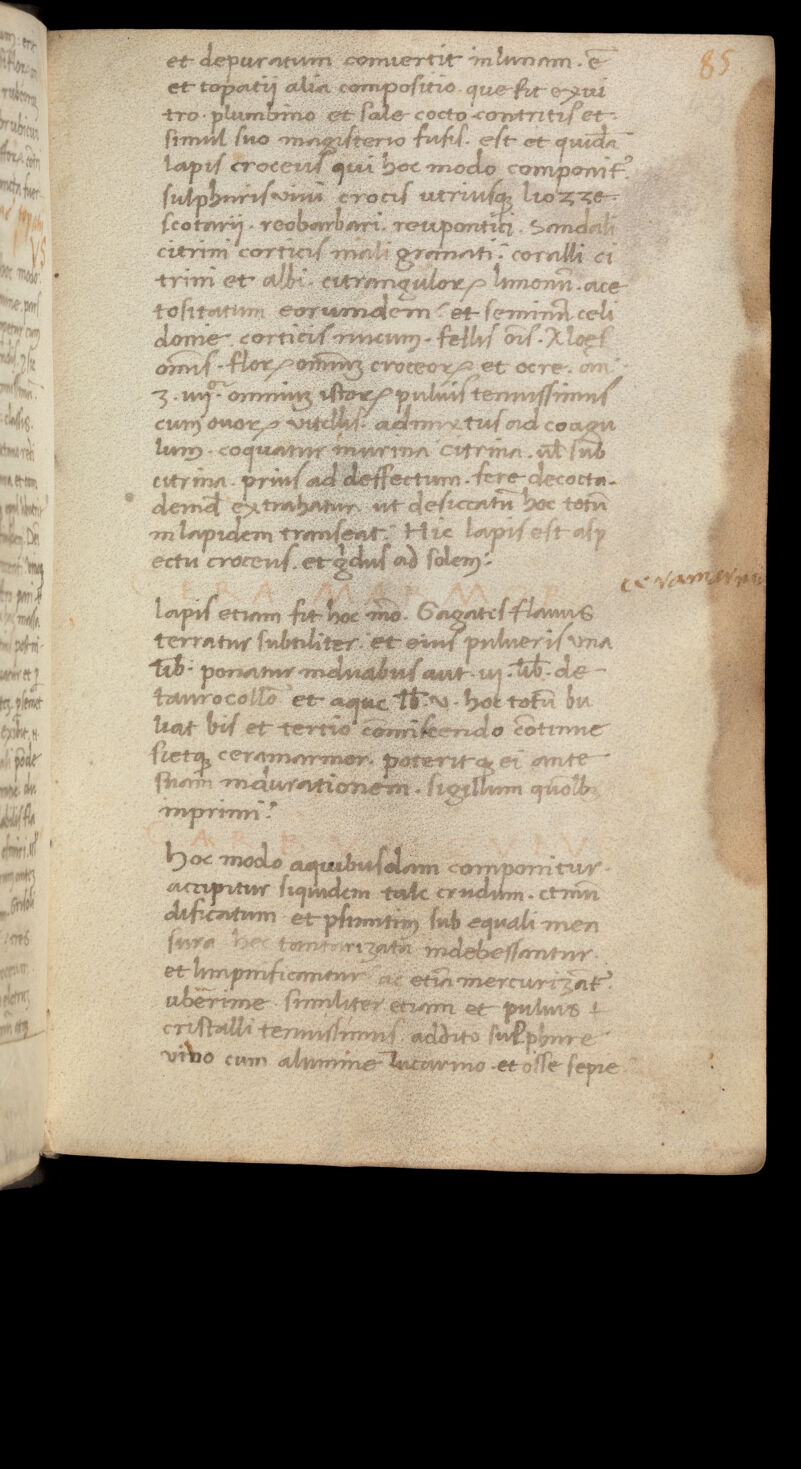 85
et depuratum conuertit in lunam . ē
et topatij alia compositio . que fit ex ui
tro . plumbino et sale cocto contritis et .
simul suo magisterio fusis . est et quidā
lapis croceus qui hoc modo componit᷒
sulphuris uiui crocis utriusqꝫ
scotarij . reobarbari . reupontici . Sandali
citrini corticis mali granati . coralli ci
trini et albi . citrangulorꝝ limonū . ace
tositatum eorumdem et seminū celi
donie corticis nucum . fellis oīs . Aloes
omīs . florꝝ omniuꝫ croceorꝝ et ocre . an̄
ʒ . iiij . omniuꝫ istorꝝ puluis tenuissimus
cum ouorꝝ uitellis . admixtus ad coagu
lum . coquatur in urina citrina . ul̄ sub
citrina . prius ad deffectum . fere decocta .
demū extrahatur ut desiccatū hoc totū
in lapidem transeat . Hic lapis est asp
ectu croceus . et gͥdus ad solem :
CERA MARMOR
ceramarmor
lapis etiam fit hoc mō . Gagates flauus
terratur subtiliter . et eius pulueris una
lib̄ . ponatur in duabus aut . iij . lib̄ . de
taurocollo et aque lb̄ . v . hoc totū bu
liat bis et tertio cōmiscendo cōtinue
fietqꝫ ceramarmor . poteritqꝫ ei ante
suam indurationem . sigillum quolb
imprimi :
CARBUNCULUS
hoc modo a quibusdam componitur .
accipitur siquidem talc crudum .
dificatum et sub equali men
sura hec tantarizata indebessantur .
et limpinificantur ac etiā mercurizāt᷒
uberime . similiter etiam et puluis
cristalli tenuissimus addito sulphure
uiuo cum alumine et osse sepie